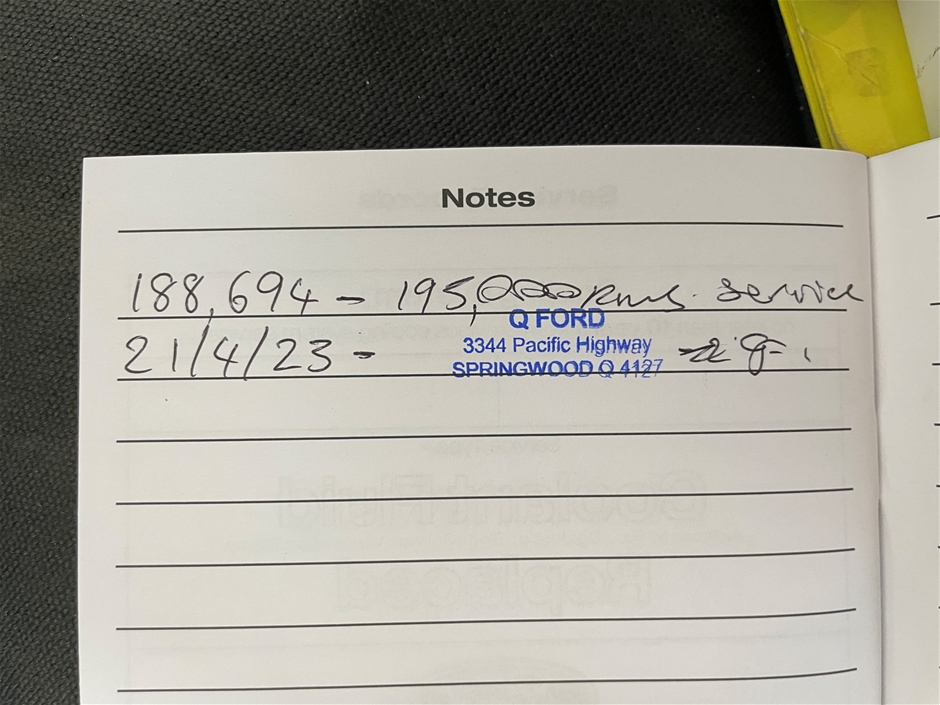 Notes
188,694 - 195,000kms. service
Q FORD
21/4/23 - 3344 Pacific Highway
SPRINGWOOD Q 4127